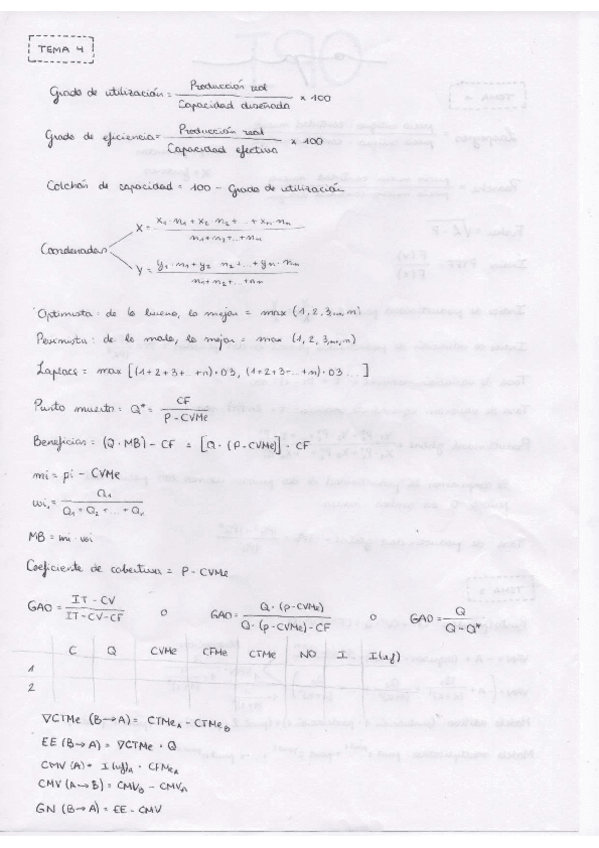 TEMA 4
Grado de utilización = Producción real / Capacidad diseñada × 100
Grado de eficiencia = Producción real / Capacidad efectiva × 100
Colchón de capacidad = 100 - Grado de utilización
Coordenadas
X = x₁·n₁ + x₂·n₂ + ... + xₙ·nₙ / n₁+n₂+...+nₙ
Y = y₁·n₁ + y₂·n₂ + ... + yₙ·nₙ / n₁+n₂+...+nₙ
Optimista: de lo bueno, lo mejor = max (1, 2, 3, ..., n)
Pesimista: de lo malo, lo mejor = max (1, 2, 3, ..., n)
Laplace = max [(1+2+3+...+n)·03, (1+2+3+...+n)·03 ...]
Punto muerto = Q* = CF / P-CVMe
Beneficios = (Q·MB) - CF = [Q·(P-CVMe)] - CF
mi = pi - CVMe
wi = Q₁ / Q₁+Q₂+...+Qₙ
MB = mi·wi
Coeficiente de cobertura = P-CVMe
GAO = IT-CV / IT-CV-CF o GAO = Q·(p-CVMe) / Q·(p-CVMe)-CF o GAO = Q / Q-Q*
C Q CVMe CFMe CTMe NO I I(uf)
1
2
∇CTMe (B→A) = CTMe_A - CTMe_B
EE (B→A) = ∇CTMe · Q
CMV (A) = I(uf)_A · CFMe_A
CMV (A→B) = CMV_B - CMV_A
GN (B→A) = EE - CMV